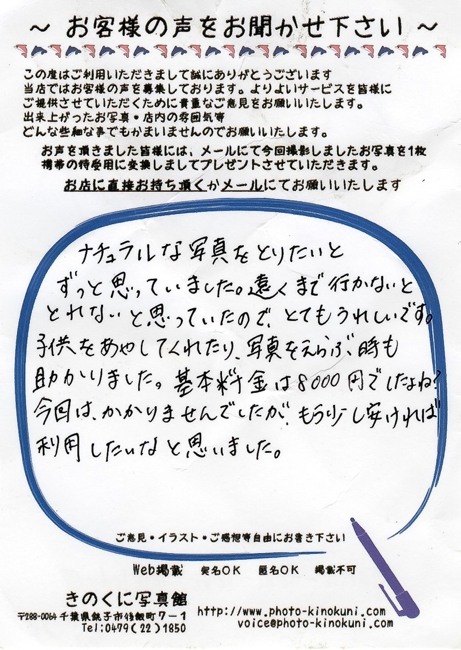 ～ お客様の声をお聞かせ下さい ～
この度はご利用いただきまして誠にありがとうございます
当店ではお客様の声を募集しております。よりよいサービスを皆様に
ご提供させていただくために貴重なご意見をお願いいたします。
出来上がったお写真・店内の雰囲気等
どんな些細な事でもかまいませんのでお願いいたします。
お声を頂きました皆様には、メールにて今回撮影しましたお写真を1枚
携帯の待受用に変換しましてプレゼントさせていただきます。
お店に直接お持ち頂くかメールにてお願いいたします
ナチュラルな写真をとりたいと
ずっと思っていました。遠くまで行かないと
とれないと思っていたので、とてもうれしいです。
子供をあやしてくれたり、写真をえらぶ時も
助かりました。基本料金は8000円でしたよね?
今回は、かかりませんでしたが、もう少し安ければ
利用したいなと思いました。
ご意見・イラスト・ご感想等自由にお書き下さい
Web掲載 実名OK 匿名OK 掲載不可
きのくに写真館
〒288-0064 千葉県銚子市
町7－1
Tel:0479(22)1850
http://www.photo-kinokuni.com/
voice@photo-kinokuni.com